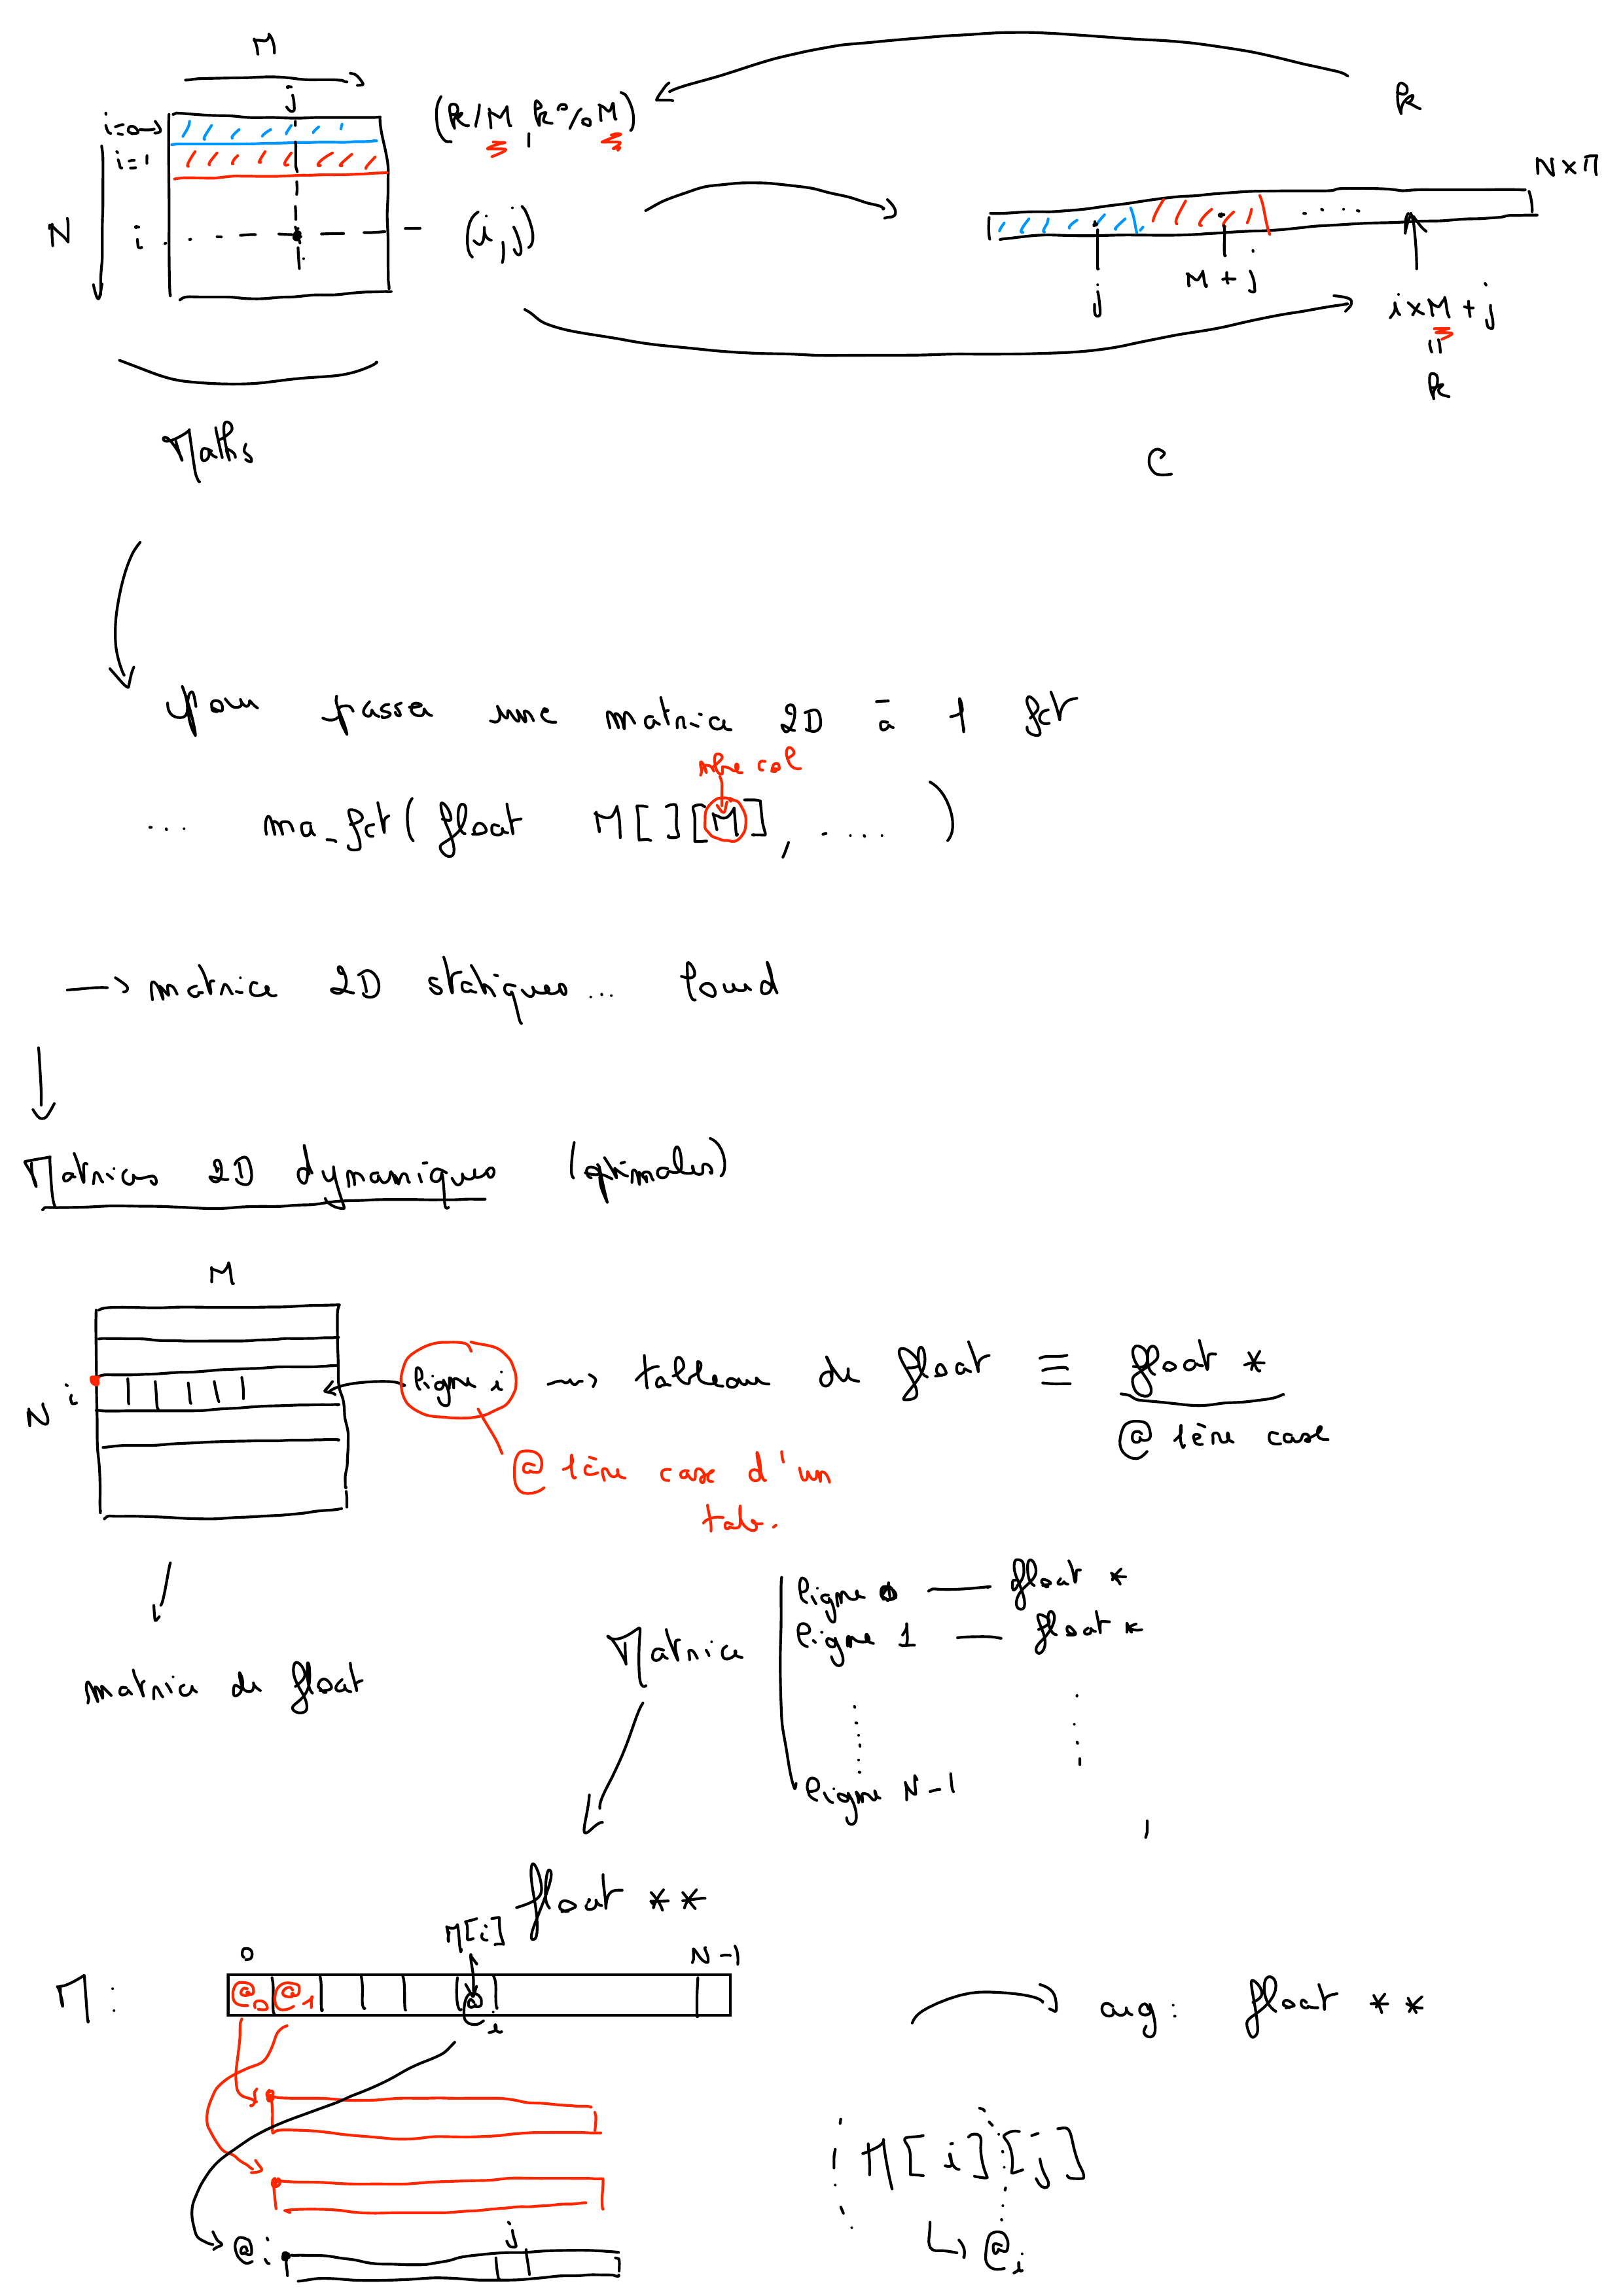 M
j
i=0→
i=1
N
i
(k/M, k%M)
(i,j)
k
N×M
j
M+j
i×M+j
=
k
Maths
C
pour passer une matrice 2D à 1 fct
nbre col
... ma_fct(float M[][M], .... )
→ matrice 2D statiques... lourd
Matrices 2D dynamiques (optimales)
M
N
i
ligne i → tableau de float ≡ float *
@ 1ère case
@ 1ère case d'un
tab.
matrice de float
Matrice
ligne 0 — float *
ligne 1 — float *
ligne N-1
float **
M[i]
0
N-1
M :
@0
@1
@i
arg: float **
M[i][j]
↳ @i
@i
j